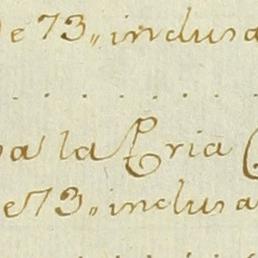 de 73,, inclusa
pa la Pria C
e 73,, inclusa